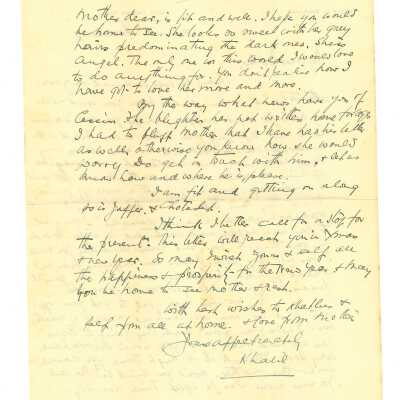 Mother dear, is fit and well. I hope you would
be home to see. She looks so sweet with her grey
hairs predominating the dark ones. She is
Angel. The only one in this world I would love
to do anything for. You don't realise how I
have got to love her more and more.
By the way what news have you of
Cassim. The blighter has not written home for
I had to bluff mother that I have had his letter
as well, otherwise you know how she would
worry. Do get in touch with him, & let us
know how and where he is, please.
I am fit and getting on along
so is Jaffer, &
I think I better call for a stop for
the present. This letter will reach you in Xmas
& new year. So may I wish yours & self all
the happiness & prosperity in the New Year & may
you be home to see mother & rest.
With best wishes to & 
self from all at home. & love from mother
Yours affectionately
Khalil